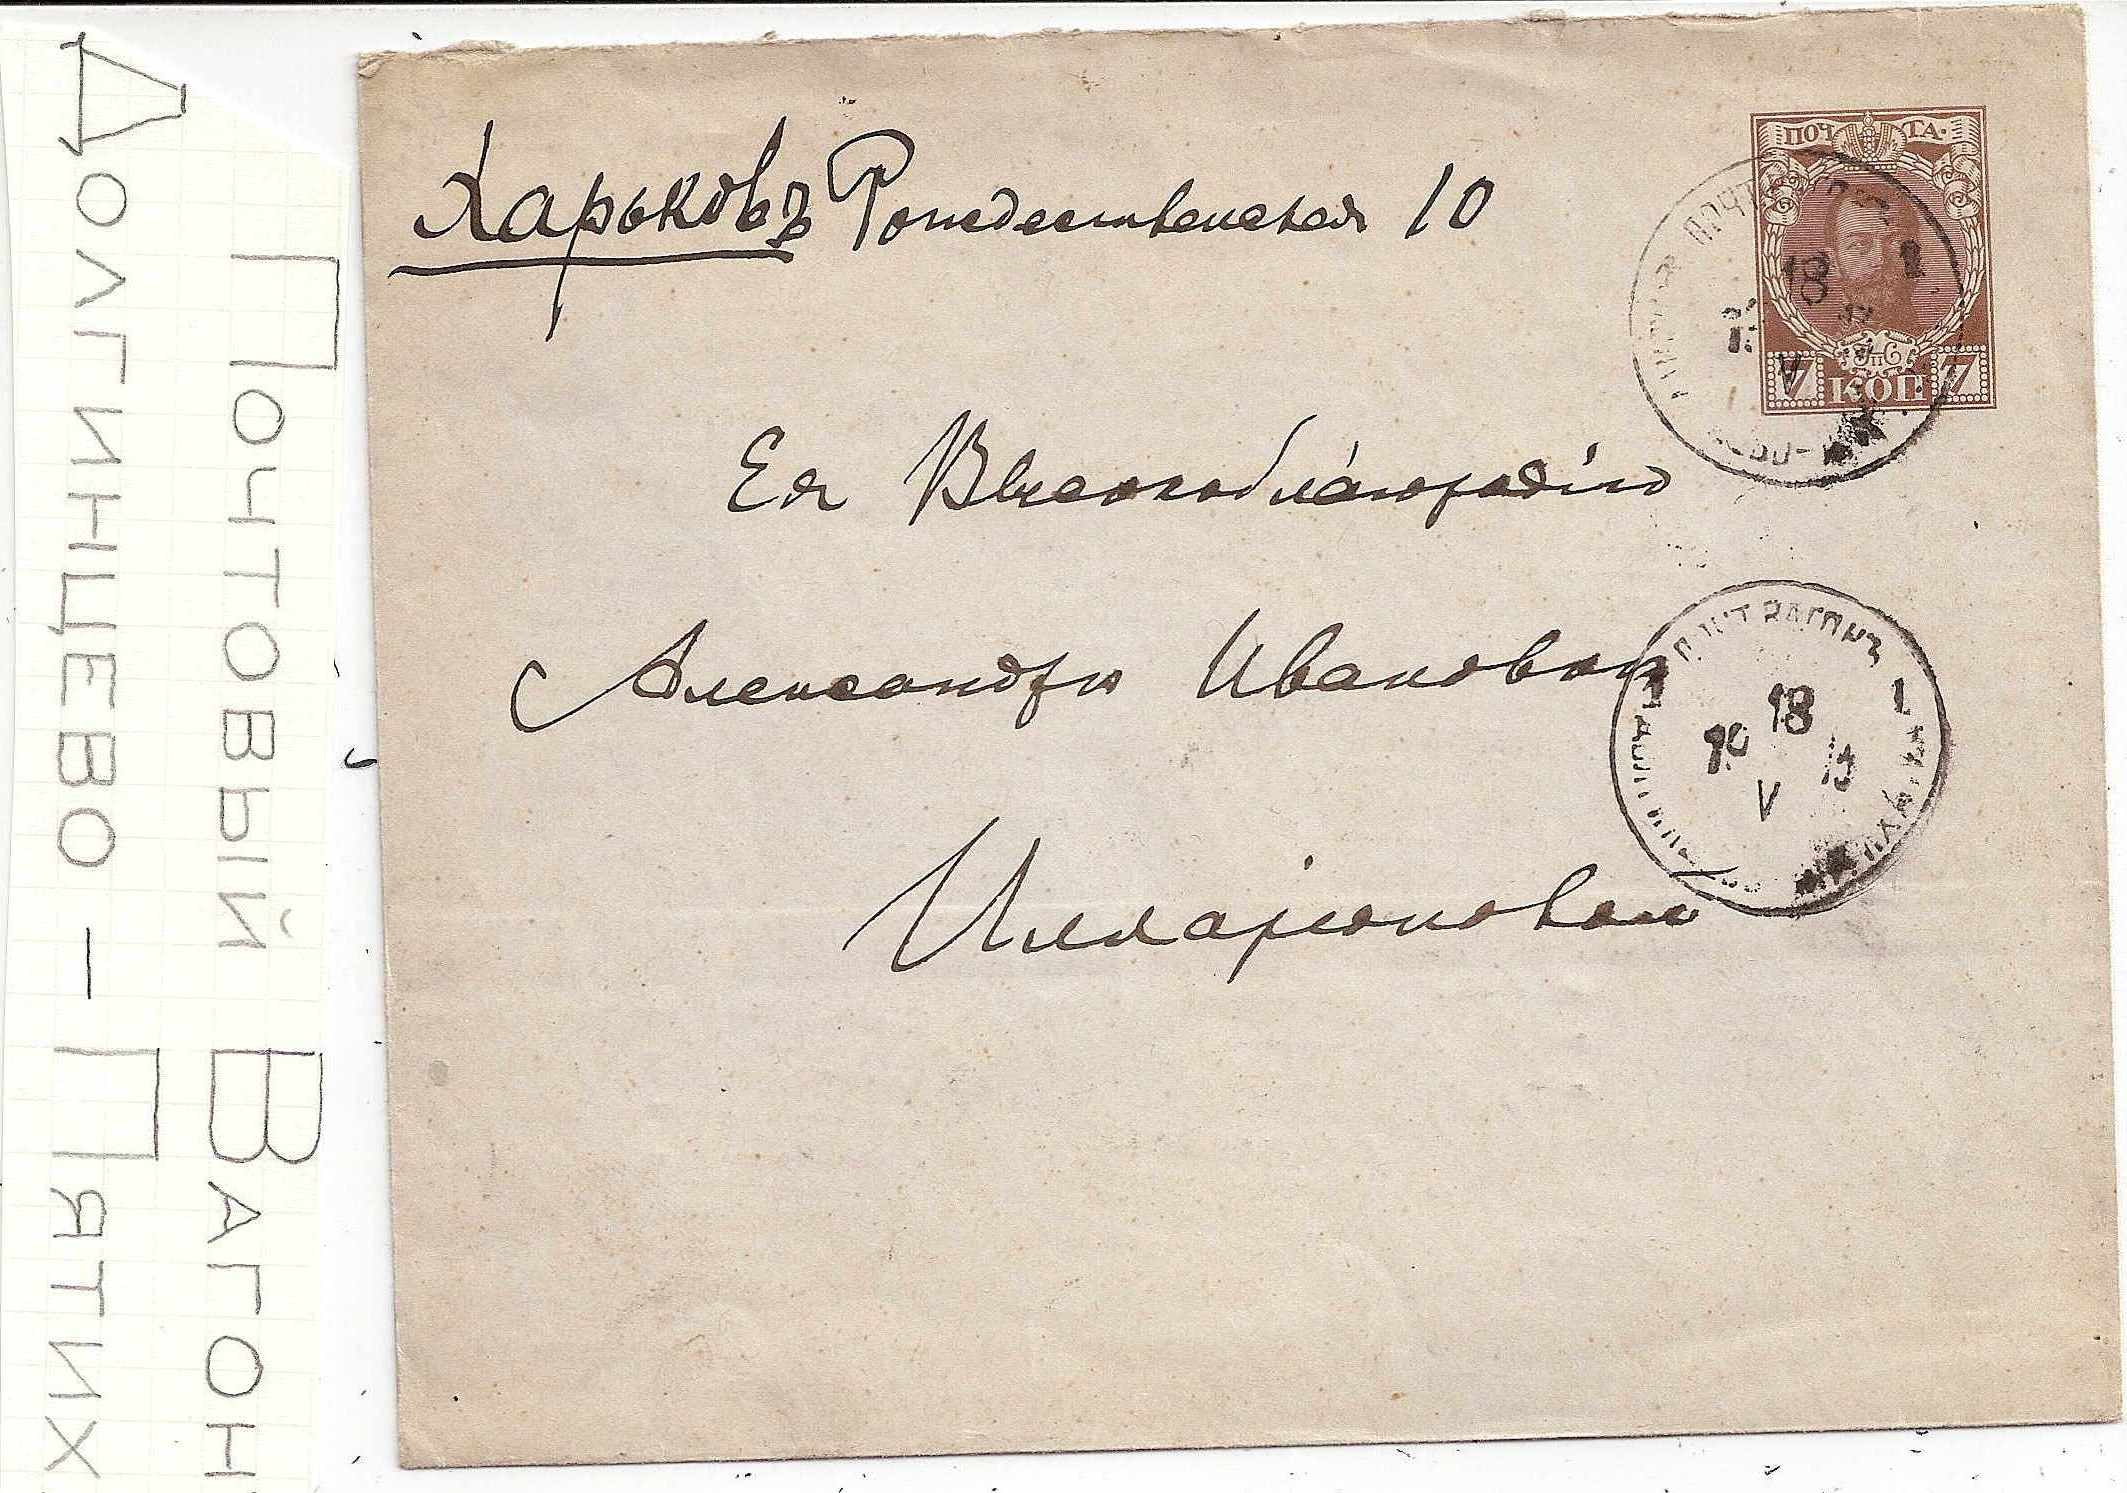 Почтовый Вагон
Долгинцево – Пятих
Харьковъ Рождественская 10
ПОЧТА
7 КОП 7
Ея Высокоблагородію
Александрѣ Ивановнѣ
Илларіоновой
18
V
ПОЧТ ВАГОНЪ
18
19 15
V